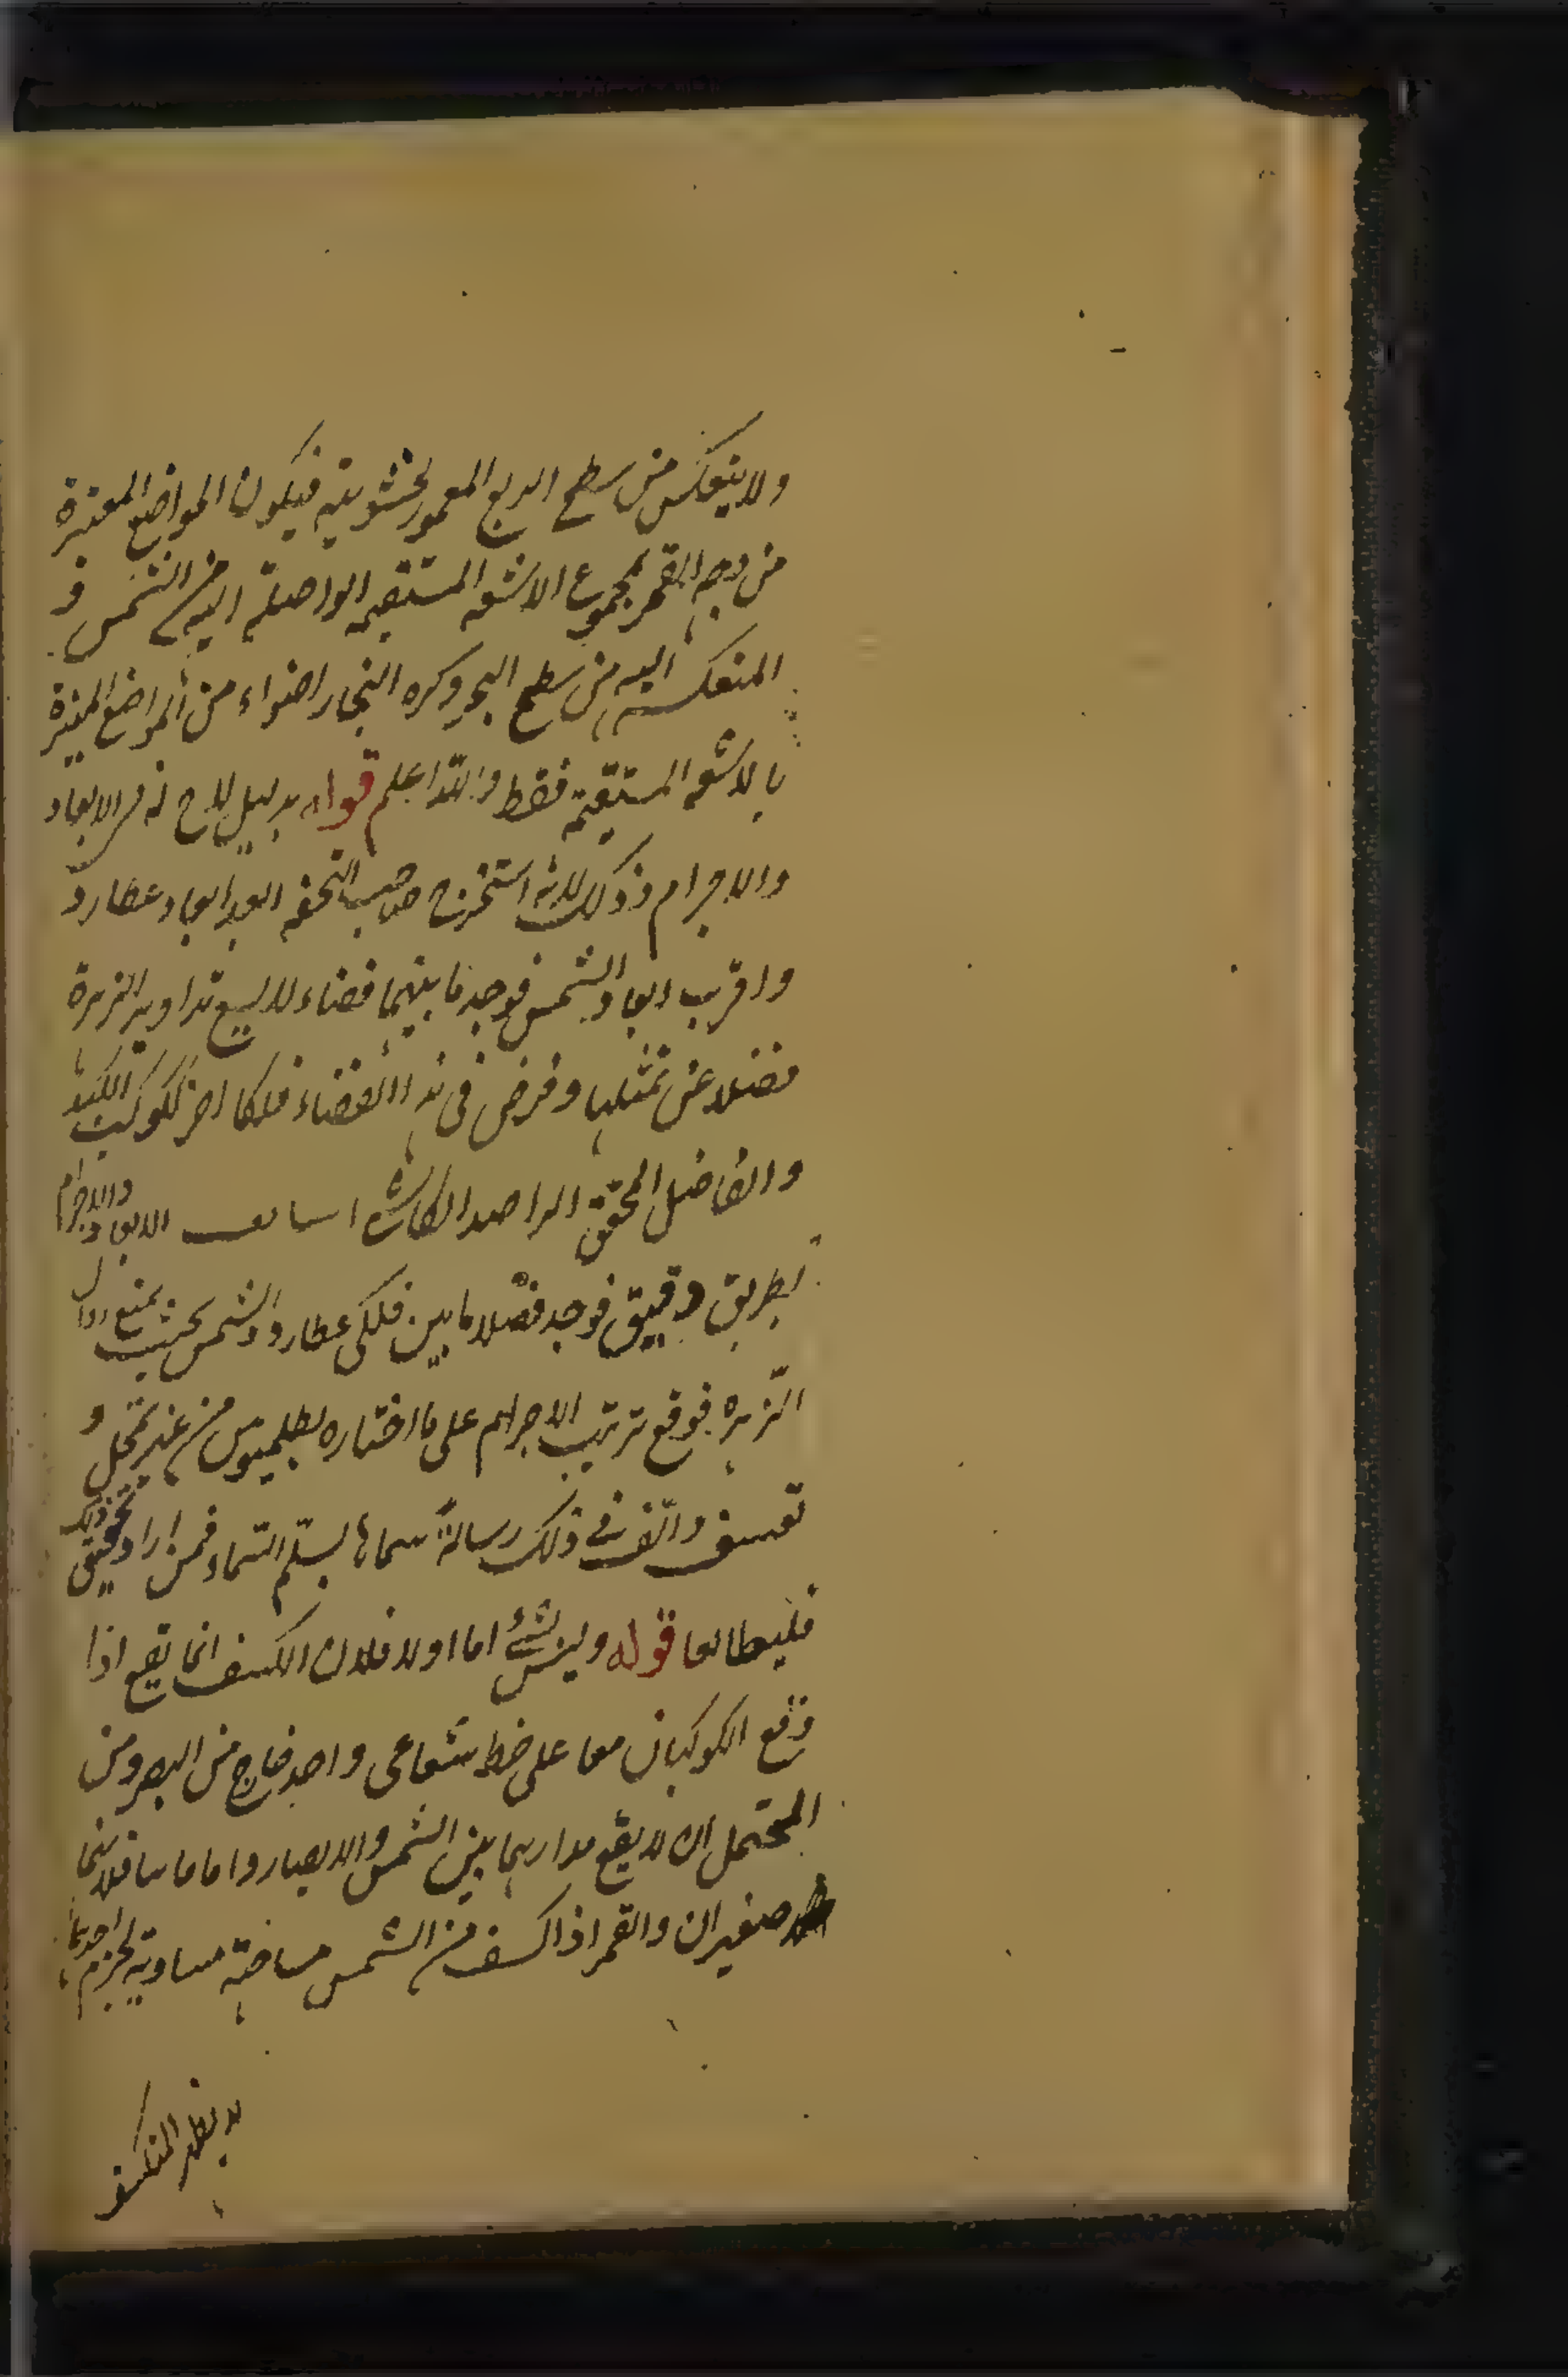 ولا ينعكس من سطح الربع المعمور لخشونته فيكون المواضع المعتبرة
من وجه القمر بمجموع الاشعه المستقيمه الواصلة اليه من الشمس و
المنعكسة اليه من سطح البحر وكره البخار اضواء من المواضع المنيرة
بالاشعه المستقيمة فقط والله اعلم قوله بدليل لاح له في الابعاد
والاجرام وذلك لانه استخرج صاحب التحفه ابعد ابعاد عطارد
واقرب ابعاد الشمس فوجد ما بينهما فضاء لا يسع تداوير الزهرة
فضلا عن ممثلها وفرض في هذا الفضاء فلكا اخر للكوكب
والفاضل المحقق الراصد الكاشي الابعاد والاجرام
بطريق دقيق فوجد فضلا ما بين فلكي عطارد والشمس بحيث يمنع
الزهره فوقع ترتيب الاجرام على ما اختاره بطلميوس من غير تمحل و
تعسف والف في ذلك رسالة سماها بسلم السماء فمن اراد تحقيق ذلك
فليطالعها قوله وليس بشئ اما اولا فلان الكسف انما يقع اذا
وقع الكوكبان معا على خط شعاعي واحد خارج من البصر ومن
المحتمل ان لا يقع مدارهما بين الشمس والابصار واما ثانيا فلانهما
صغيران والقمر اذا كسف من الشمس مساحة مساوية لجرم احدهما
لا يظهر المنكسف